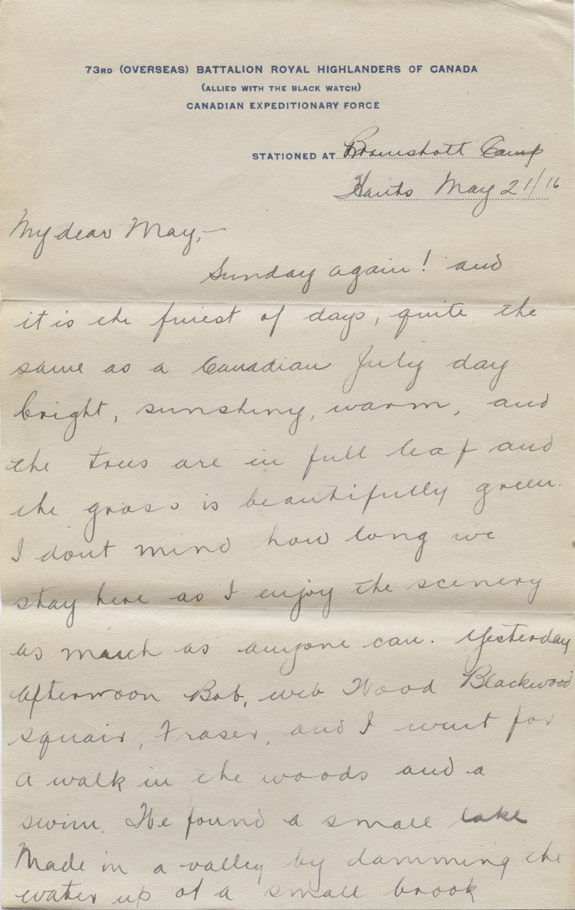 73RD (OVERSEAS) BATTALION ROYAL HIGHLANDERS OF CANADA
(ALLIED WITH THE BLACK WATCH)
CANADIAN EXPEDITIONARY FORCE
STATIONED AT Bramshott Camp
Hants May 21/16
My dear May,—
Sunday again! and
it is the finest of days, quite the
same as a Canadian July day
bright, sunshiny, warm, and
the trees are in full leaf and
the grass is beautifully green.
I dont mind how long we
stay here as I enjoy the scenery
as much as anyone can. Yesterday
afternoon Bob, web Wood Blackwood
Squair, Fraser, and I went for
a walk in the woods and a
swim. We found a small lake
Made in a valley by damming the
water up of a small brook